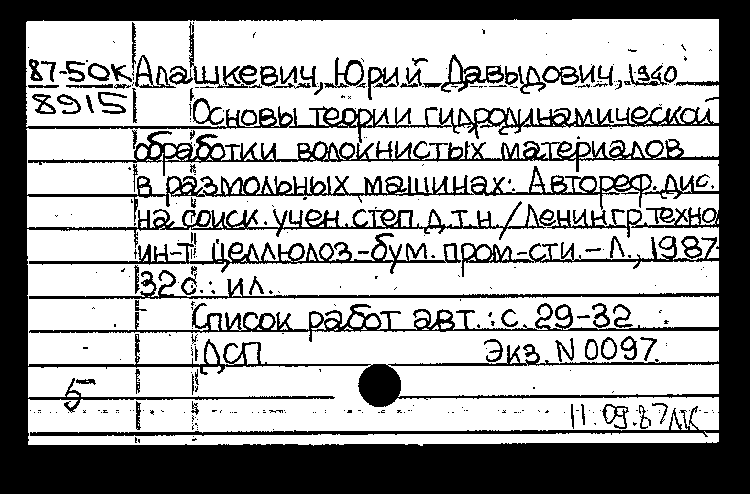 87-5ОК Алашкевич, Юрий Давыдович, 1940
8915 Основы теории гидродинамической
обработки волокнистых материалов
в размольных машинах: Автореф. дис.
на соиск. учен. степ. д.т.н. / Ленингр. техно
ин-т целлюлоз-бум. пром-сти. – Л., 1987
32 с.: ил.
Список работ авт.: с. 29-32
ДСП Экз. N 0097.
5
11.09.87 ЛК